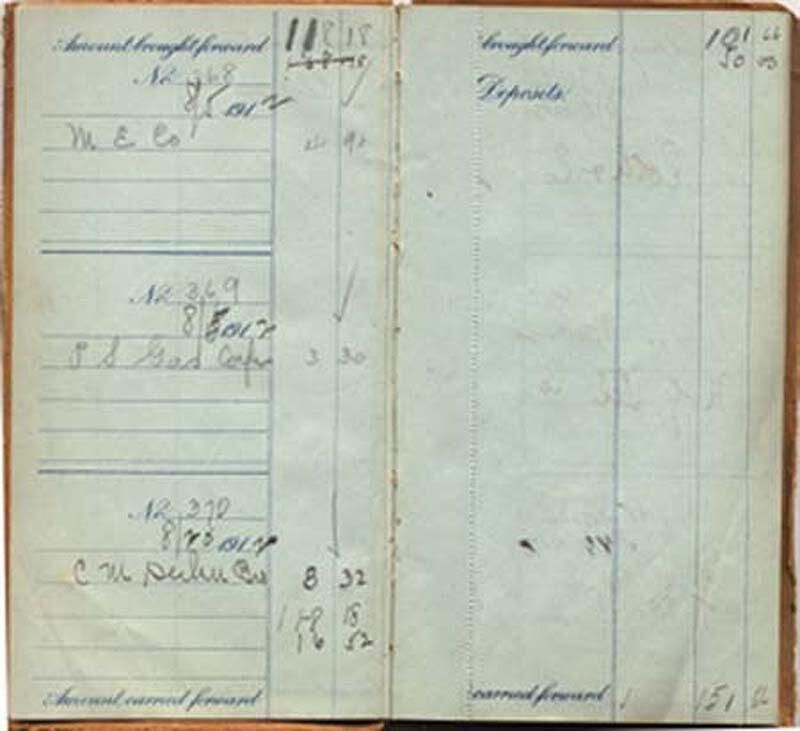 Amount brought forward 118 18
No 368
8/5 191
M E Co 4 90
No 369
8 191
P S Gas Corp 3 30
No 370
8/23 191
C M 8 32
118 18
16 52
Amount carried forward
brought forward 101 66
50 00
Deposits.
carried forward 151